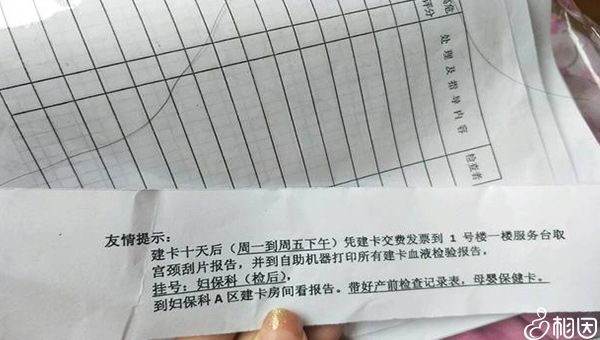 评分
处理及指导内容
检查者
友情提示：
建卡十天后（周一到周五下午）凭建卡交费发票到 1 号楼一楼服务台取
宫颈刮片报告，并到自助机器打印所有建卡血液检验报告。
挂号：妇保科（检后），
到妇保科 A 区建卡房间看报告。带好产前检查记录表，母婴保健卡。
相因